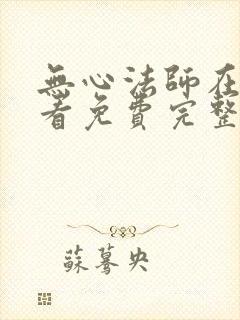 無心法師在
看免費完整
蘇驀央